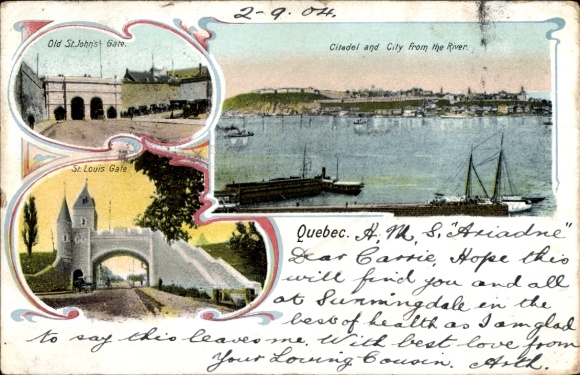 2-9.04.
Old St. John's Gate.
Citadel and City from the River.
St. Louis Gate.
Quebec. H. M. S. "Ariadne"
Dear Carrie, Hope this
will find you and all
at Sunningdale in the
best of health as I am glad
to say this leaves me. With best love from
Your Loving Cousin. Arth.